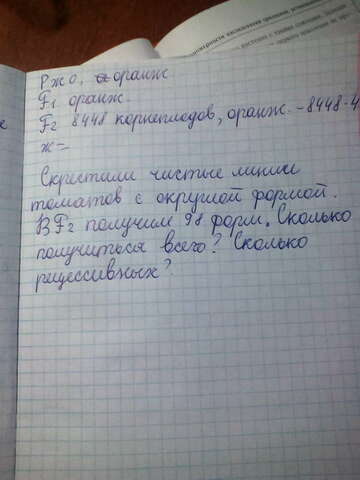 Р жо, оранж.
F₁ оранж.
F₂ 8448 корнеплодов, оранж. - 8448-4
ж =
Скрестили чистые линии
томатов с округлой формой.
В F₂ получили 98 форм. Сколько
получиться всего? Сколько
рецессивных?